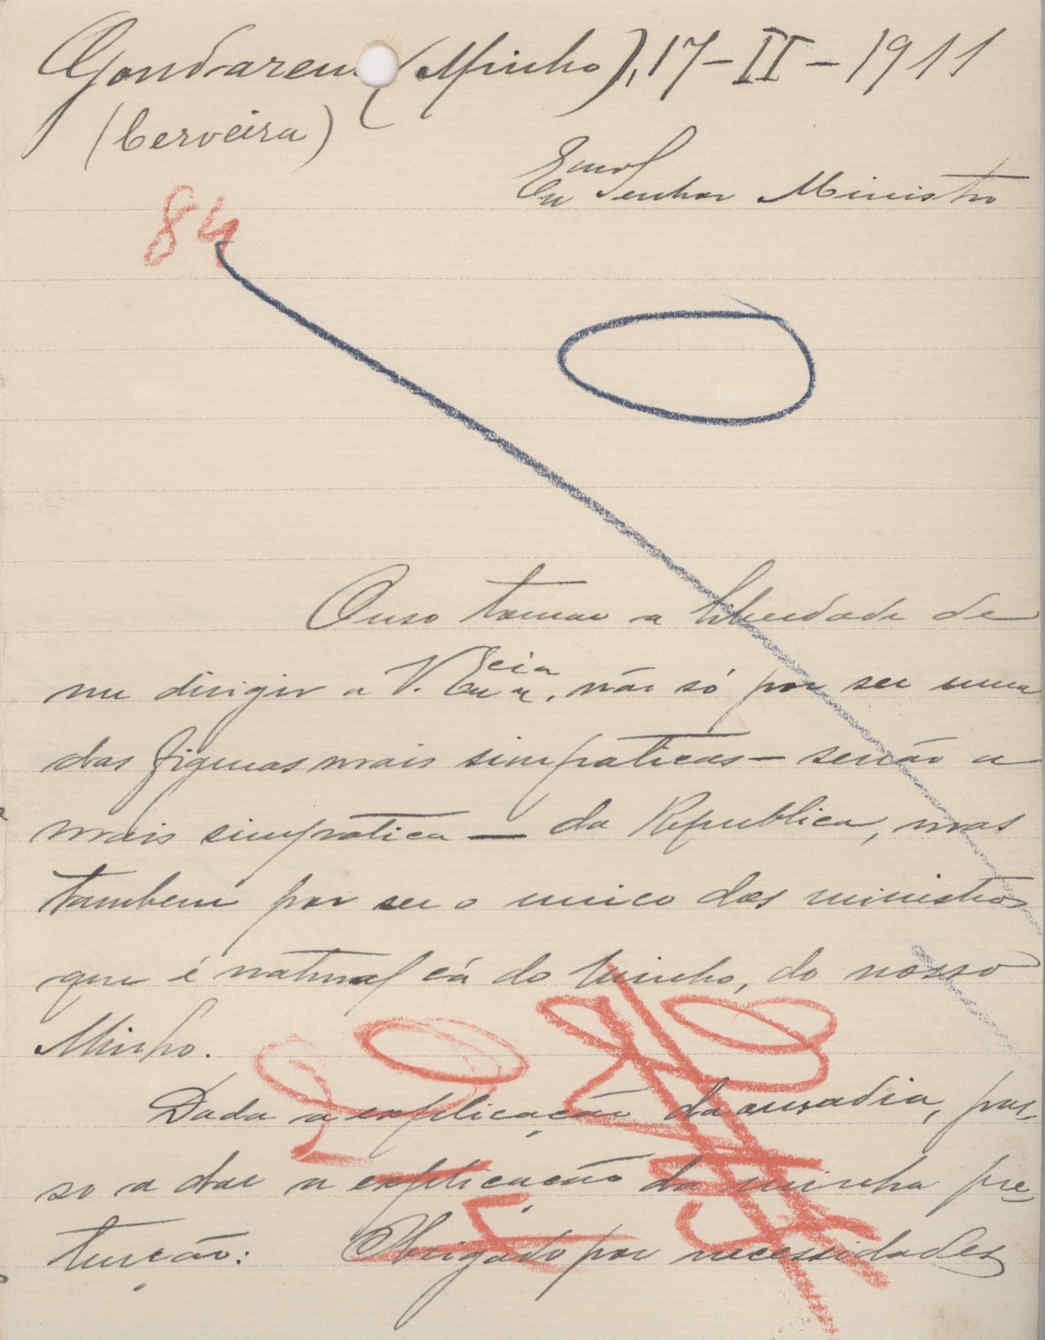 Gondarem (Minho), 17-II-1911
(Cerveira)
Exmo Senhor Ministro
84
Ouso tomar a liberdade de
me dirigir a V. Excia, não só por ser uma
das figuras mais simpaticas - senão a
mais simpatica - da Republica, mas
tambem por ser o unico dos ministros
que é natural cá do Minho, do nosso
Minho.
Dada a explicação da ousadia, pas-
so a dar a explicação da minha pre-
tenção: Obrigado por necessidades